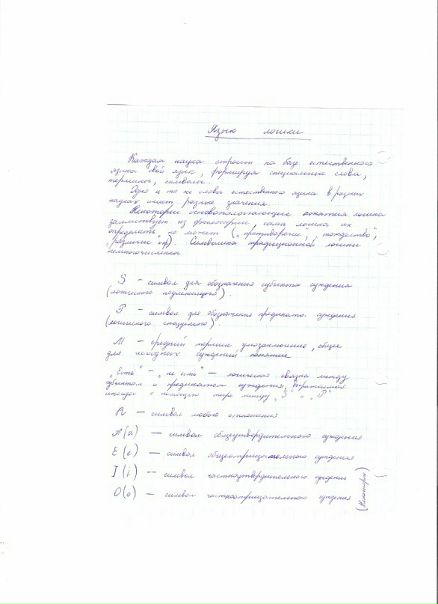 Язык логики
Каждая наука строит на базе естественного
языка свой язык, формируя специальные слова,
термины, символы.
Одно и то же слово естественного языка в разных
науках имеет разные значения.
Некоторые основополагающие понятия логика
заимствует из философии, сама логика их
определить не может ("противоречие", "тождество",
"различие" и др). Символика традиционной логики
немногочисленна
S – символ для обозначения субъекта суждения
(логического подлежащего).
P – символ для обозначения предиката суждения
(логического сказуемого)
M – средний термин умозаключения, общее
для исходных суждений понятие
"Есть" – "не есть" – логическая связка между
субъектом и предикатом суждения,
иногда с помощью тире между "S" и "P"
R – символ любого отношения
A (a) – символ общеутвердительного суждения
E (e) – символ общеотрицательного суждения
I (i) – символ частноутвердительного суждения
O (o) – символ частноотрицательного суждения